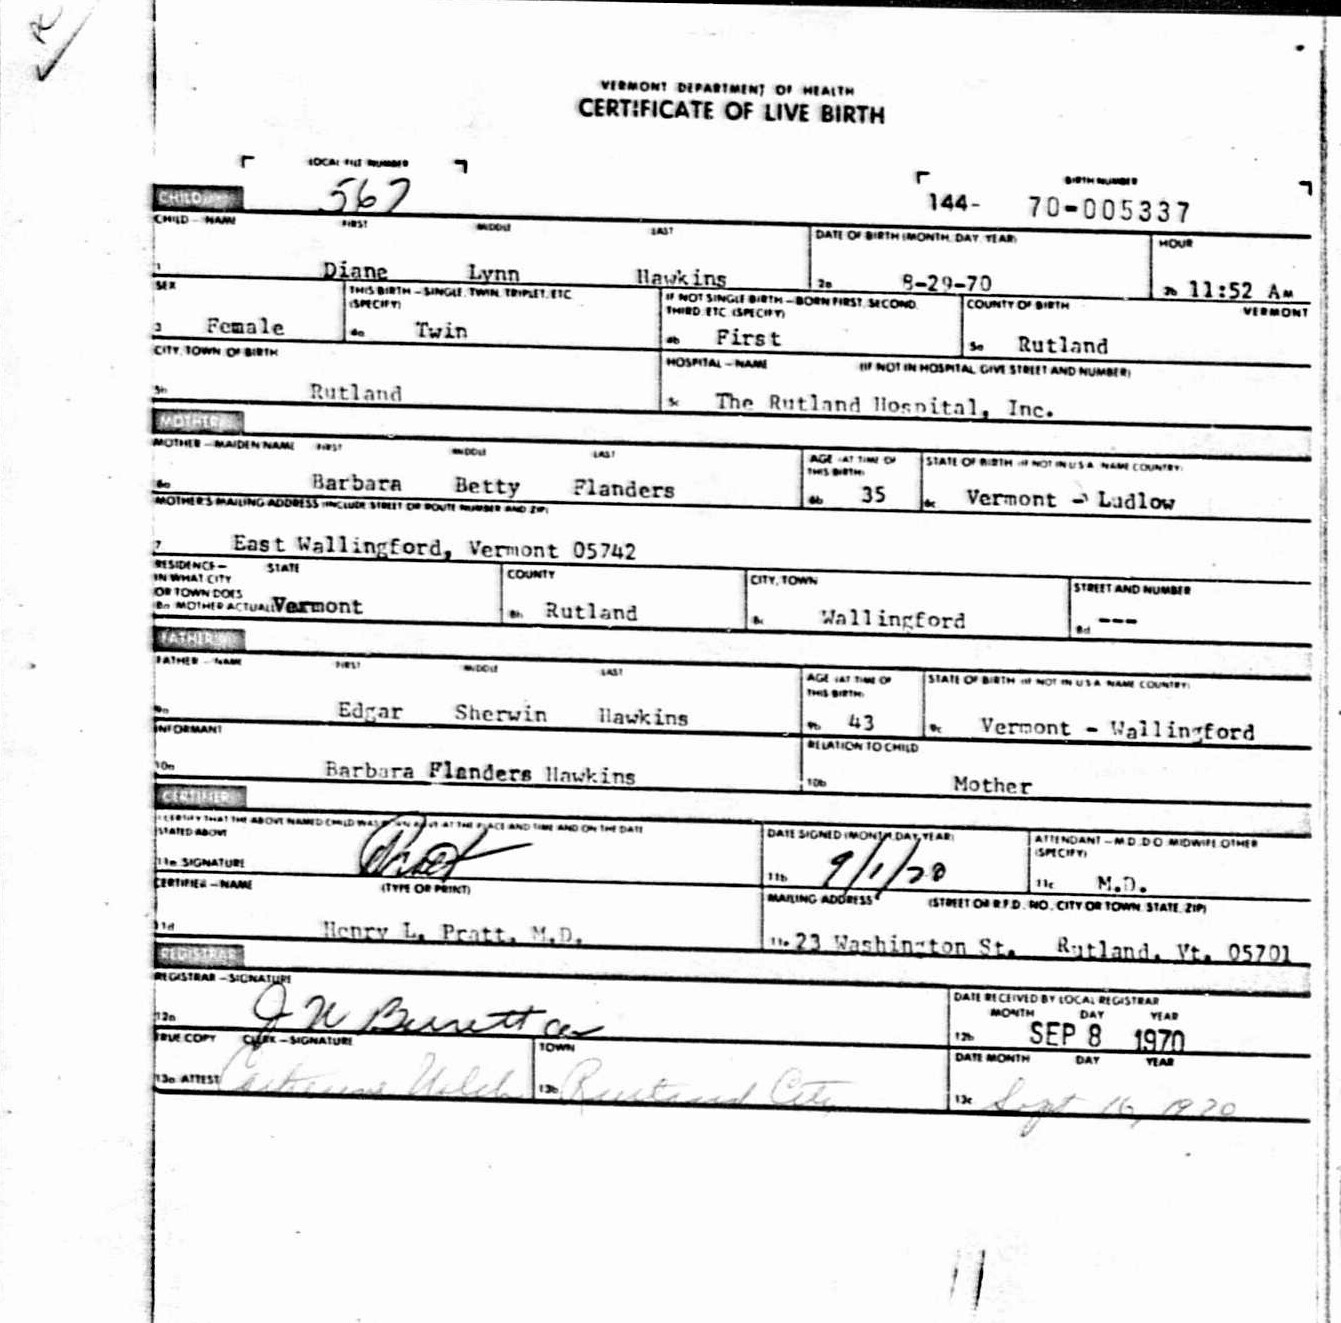 VERMONT DEPARTMENT OF HEALTH
CERTIFICATE OF LIVE BIRTH
LOCAL FILE NUMBER
BIRTH NUMBER
CHILD
567
144- 70-005337
CHILD - NAME FIRST MIDDLE LAST
DATE OF BIRTH (MONTH, DAY, YEAR)
HOUR
1 Diane Lynn Hawkins
2a 8-29-70
2b 11:52 AM
SEX
THIS BIRTH - SINGLE, TWIN, TRIPLET, ETC. (SPECIFY)
IF NOT SINGLE BIRTH - BORN FIRST, SECOND, THIRD, ETC. (SPECIFY)
COUNTY OF BIRTH VERMONT
3 Female
4a Twin
4b First
5a Rutland
CITY, TOWN OF BIRTH
HOSPITAL - NAME (IF NOT IN HOSPITAL, GIVE STREET AND NUMBER)
5b Rutland
5c The Rutland Hospital, Inc.
MOTHER
MOTHER - MAIDEN NAME FIRST MIDDLE LAST
AGE (AT TIME OF THIS BIRTH)
STATE OF BIRTH (IF NOT IN U.S.A. NAME COUNTRY)
6a Barbara Betty Flanders
6b 35
6c Vermont - Ludlow
MOTHER'S MAILING ADDRESS (INCLUDE STREET OR ROUTE NUMBER AND ZIP)
7 East Wallingford, Vermont 05742
RESIDENCE - STATE
IN WHAT CITY
OR TOWN DOES
8a MOTHER ACTUALL Vermont
COUNTY
8b Rutland
CITY, TOWN
8c Wallingford
STREET AND NUMBER
8d ---
FATHER
FATHER - NAME FIRST MIDDLE LAST
AGE (AT TIME OF THIS BIRTH)
STATE OF BIRTH (IF NOT IN U.S.A. NAME COUNTRY)
9a Edgar Sherwin Hawkins
9b 43
9c Vermont - Wallingford
INFORMANT
RELATION TO CHILD
10a Barbara Flanders Hawkins
10b Mother
CERTIFIER
I CERTIFY THAT THE ABOVE NAMED CHILD WAS BORN ALIVE AT THE PLACE AND TIME AND ON THE DATE
STATED ABOVE
11a SIGNATURE
DATE SIGNED (MONTH, DAY, YEAR)
11b 9/1/70
ATTENDANT - M.D., D.O., MIDWIFE, OTHER (SPECIFY)
11c M.D.
CERTIFIER - NAME (TYPE OR PRINT)
MAILING ADDRESS (STREET OR R.F.D. NO., CITY OR TOWN, STATE, ZIP)
11d Henry L. Pratt, M.D.
11e 23 Washington St. Rutland, Vt. 05701
REGISTRAR
REGISTRAR - SIGNATURE
12a
DATE RECEIVED BY LOCAL REGISTRAR
MONTH DAY YEAR
12b SEP 8 1970
TRUE COPY CLERK - SIGNATURE
TOWN
DATE MONTH DAY YEAR
13a ATTEST Catherine Welch
13b Rutland City
13c Sept 16, 1970